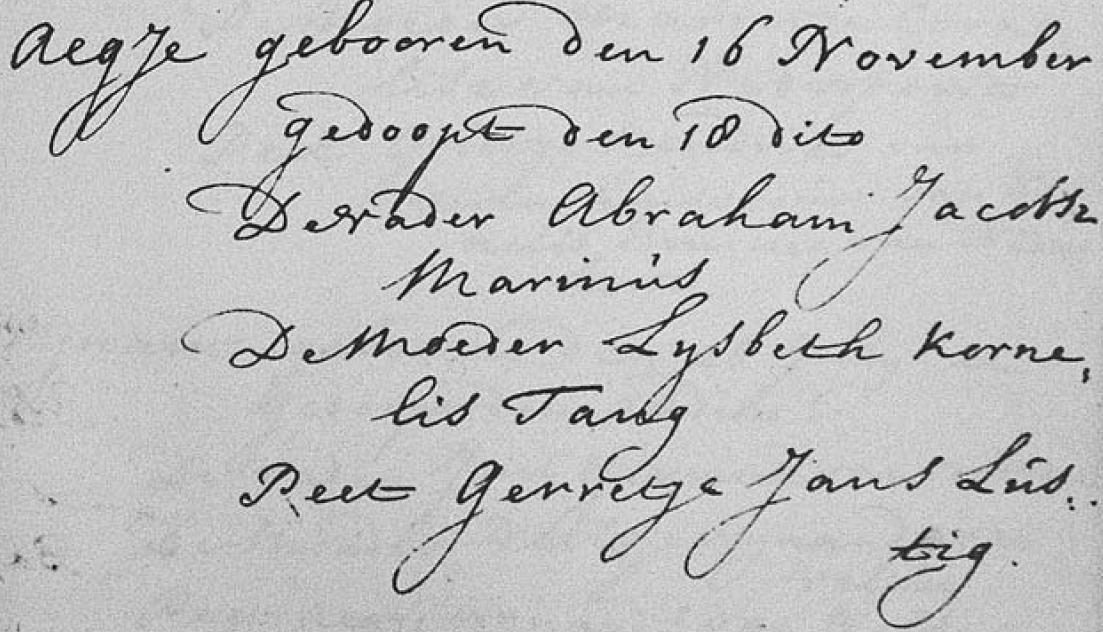 AegJe gebooren den 16 November
gedoopt den 18 dito
De vader Abraham Jacobsz
Marinùs
De Moeder Lysbeth Korne,
lis Tang
Peet Gerretje Jans Lùs:
tig.